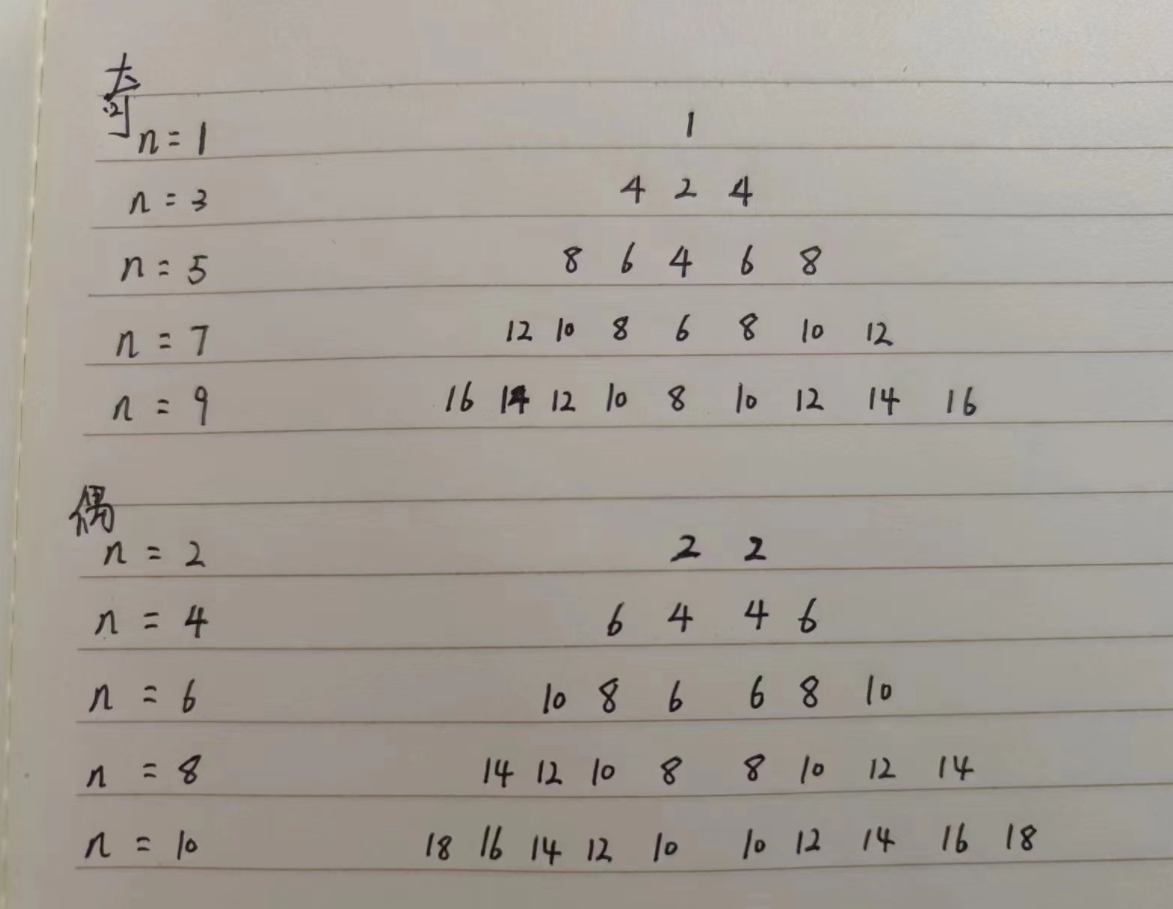 奇
n = 1 1
n = 3 4 2 4
n = 5 8 6 4 6 8
n = 7 12 10 8 6 8 10 12
n = 9 16 14 12 10 8 10 12 14 16
偶
n = 2 2 2
n = 4 6 4 4 6
n = 6 10 8 6 6 8 10
n = 8 14 12 10 8 8 10 12 14
n = 10 18 16 14 12 10 10 12 14 16 18